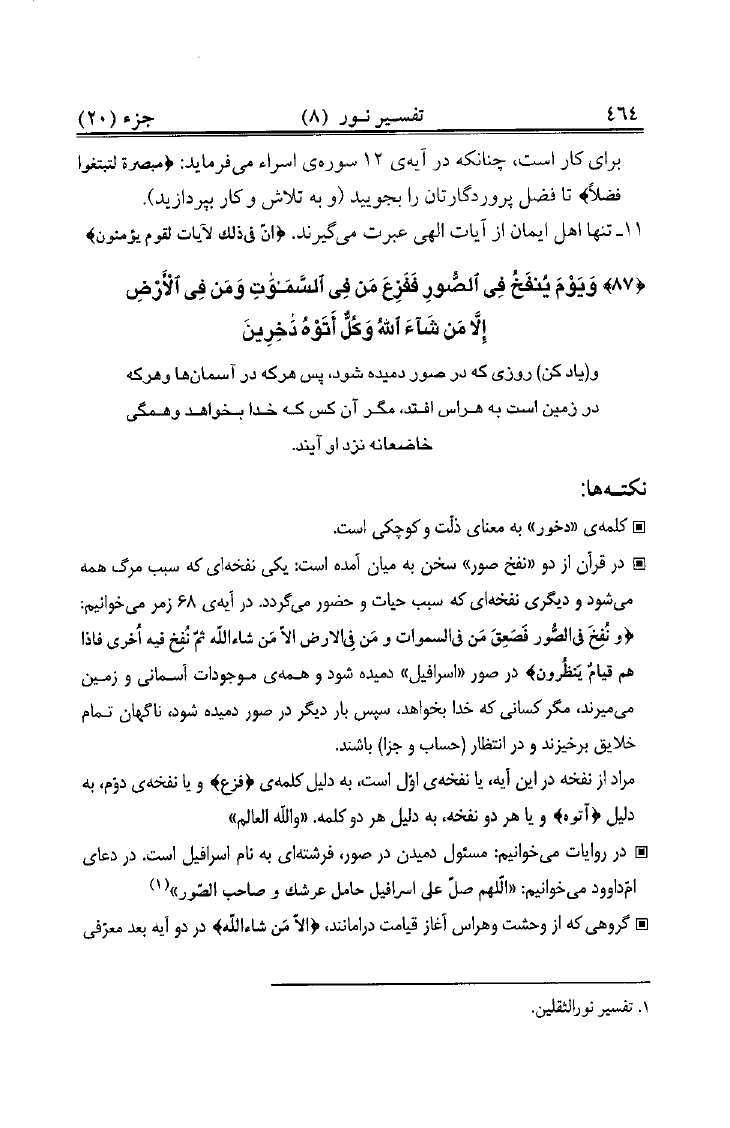 ٤٦٤ تفسیر نور (۸) جزء (۲۰)
برای کار است، چنانکه در آیه‌ی ۱۲ سوره‌ی اسراء می‌فرماید: ﴿مبصرة لتبتغوا
فضلاً﴾ تا فضل پروردگارتان را بجویید (و به تلاش و کار بپردازید).
۱۱ـ تنها اهل ایمان از آیات الهی عبرت می‌گیرند. ﴿انّ فی‌ذلك لآیات لقوم یؤمنون﴾
﴿۸۷﴾ وَيَوْمَ يُنفَخُ فِي ٱلصُّورِ فَفَزِعَ مَن فِي ٱلسَّمَـٰوَٰتِ وَمَن فِي ٱلْأَرْضِ
إِلَّا مَن شَآءَ ٱللهُ وَكُلٌّ أَتَوْهُ دَٰخِرِينَ
و(یاد کن) روزی که در صور دمیده شود، پس هرکه در آسمان‌ها وهرکه
در زمین است به هراس افتد، مگر آن کس که خدا بخواهد وهمگی
خاضعانه نزد او آیند.
نکته‌ها:
▣ کلمه‌ی «دخور» به معنای ذلّت و کوچکی است.
▣ در قرآن از دو «نفخ صور» سخن به میان آمده است: یکی نفخه‌ای که سبب مرگ همه
می‌شود و دیگری نفخه‌ای که سبب حیات و حضور می‌گردد. در آیه‌ی ۶۸ زمر می‌خوانیم:
﴿و نُفِخَ فی‌الصُّور فَصَعِقَ مَن فی‌السموات و مَن فی‌الارض الاّ مَن شاءاللّه ثمّ نُفِخ فیه اُخری فاذا
هم قیامٌ یَنظُرون﴾ در صور «اسرافیل» دمیده شود و همه‌ی موجودات آسمانی و زمین
می‌میرند، مگر کسانی که خدا بخواهد، سپس بار دیگر در صور دمیده شود، ناگهان تمام
خلایق برخیزند و در انتظار (حساب و جزا) باشند.
مراد از نفخه در این آیه، یا نفخه‌ی اوّل است، به دلیل کلمه‌ی ﴿فزع﴾ و یا نفخه‌ی دوّم، به
دلیل ﴿آتوه﴾ و یا هر دو نفخه، به دلیل هر دو کلمه. «واللّه العالم»
▣ در روایات می‌خوانیم: مسئول دمیدن در صور، فرشته‌ای به نام اسرافیل است. در دعای
امّ‌داوود می‌خوانیم: «الّلهم صلّ علی اسرافیل حامل عرشك و صاحب الصّور»(۱)
▣ گروهی که از وحشت وهراس آغاز قیامت درامانند، ﴿الاّ مَن شاءاللّه﴾ در دو آیه بعد معرّفی
۱. تفسیر نورالثقلین.